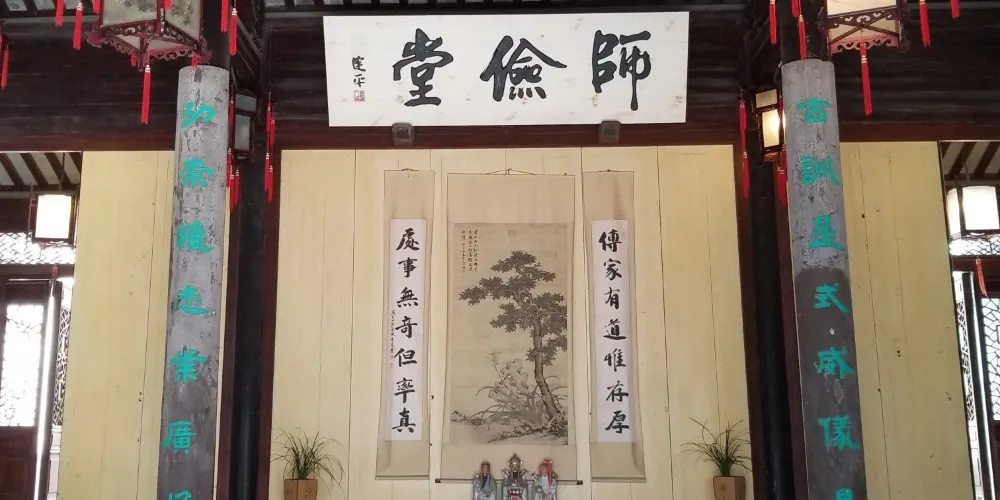 師儉堂
建平
古訓是式威儀
功崇惟志業廣
傳家有道惟存厚
處事無奇但率真